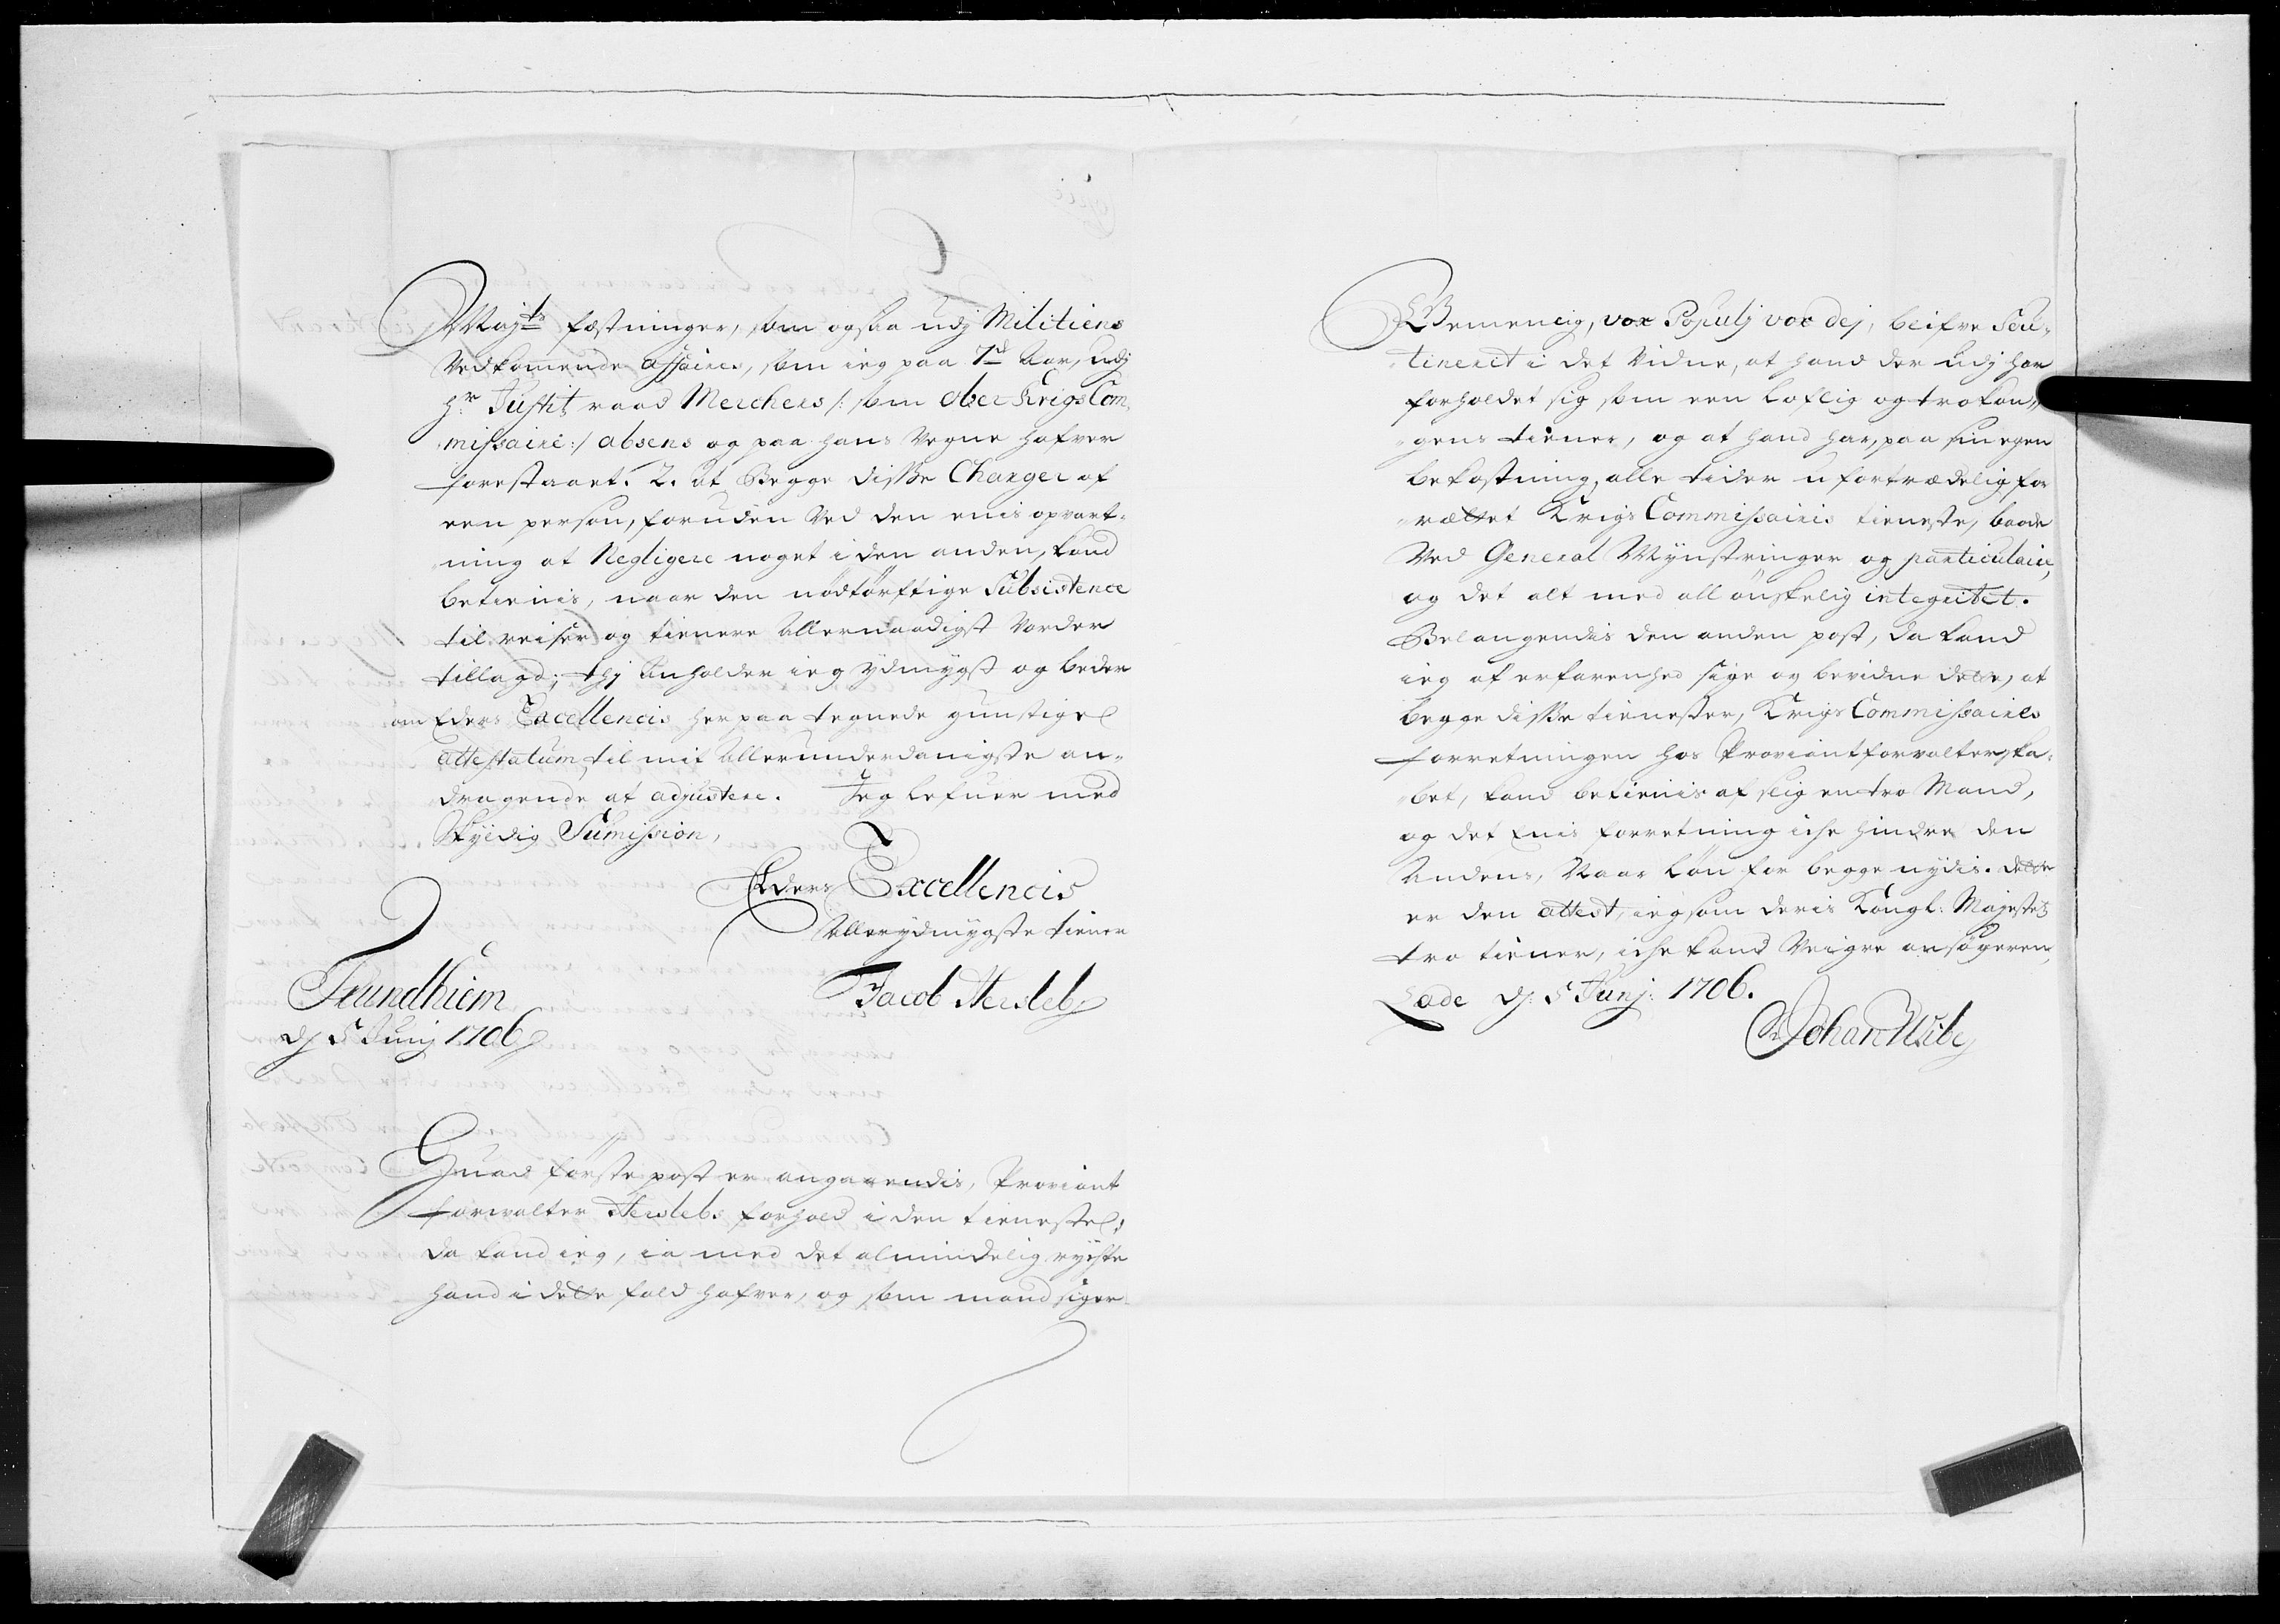 Majts festninger, som ogsaa udj Militiens
Vedkomende affaires, som ieg paa 7de Aar, udj
Hr Justitz raad Merchers /: som Ober Krigs Com,
missaire :/ absens og paa hans Vegne hafver
forestaaet. 2. At Begge disse Charger af
een person, foruden Ved den enis opvart-
ning at Negligere noget i den anden, kand
betienis, naar den nödtörftige Subsistence
til reiser og tienere Allernaadigst Vorder
tillagd; thj Anholder ieg ydmygst og beder
om Eders Excellencis her paa tegnede gunstige
attestatum til mit Allerunderdanigste an-
dragende at adjustere. Jeg lefuer med
Skyldig Sumission,
Eders Excellencis
Allerydmygste tiener
Trundhiem
dj 5 Junj 1706
Jacob Hersleb
Huad förste post er angaaendis, Proviant
forvalter Herslebs forhold i den tieneste;
da kand ieg, ia med det almindelig rychte
hand i dette fald hafver, og som mand siger
Gemeenlig, vox Populj vox dej, beifve Sou-
tineret i det Vidne, at hand der udj har
forholdet sig som een loflig og tro kon-
gens tiener, og at hand har, paa sin egen
bekostning, alle tider ufortrædelig for
rættet Krigs Commissairis tieneste, baade
Ved General Mynstringer og particulaire,
og det alt med all önskelig integritet.
Belangendis den anden post, da kand
ieg af erfarenhed sige og bevidne dette, at
begge disse tienester, Krigs Commissaires
forretningen hos Proviantforvalterska-
bet, kand betienis af slig en tro Mand,
og det Enis forretning iche hindre den
Andens, Naar Lön for begge nydis. dette
er den attest, ieg som deris Kongl: Majestetz
tro tiener, iche kand Veigre ansögeren,
Lade dj: 5 Junj: 1706.
Johan Wibe